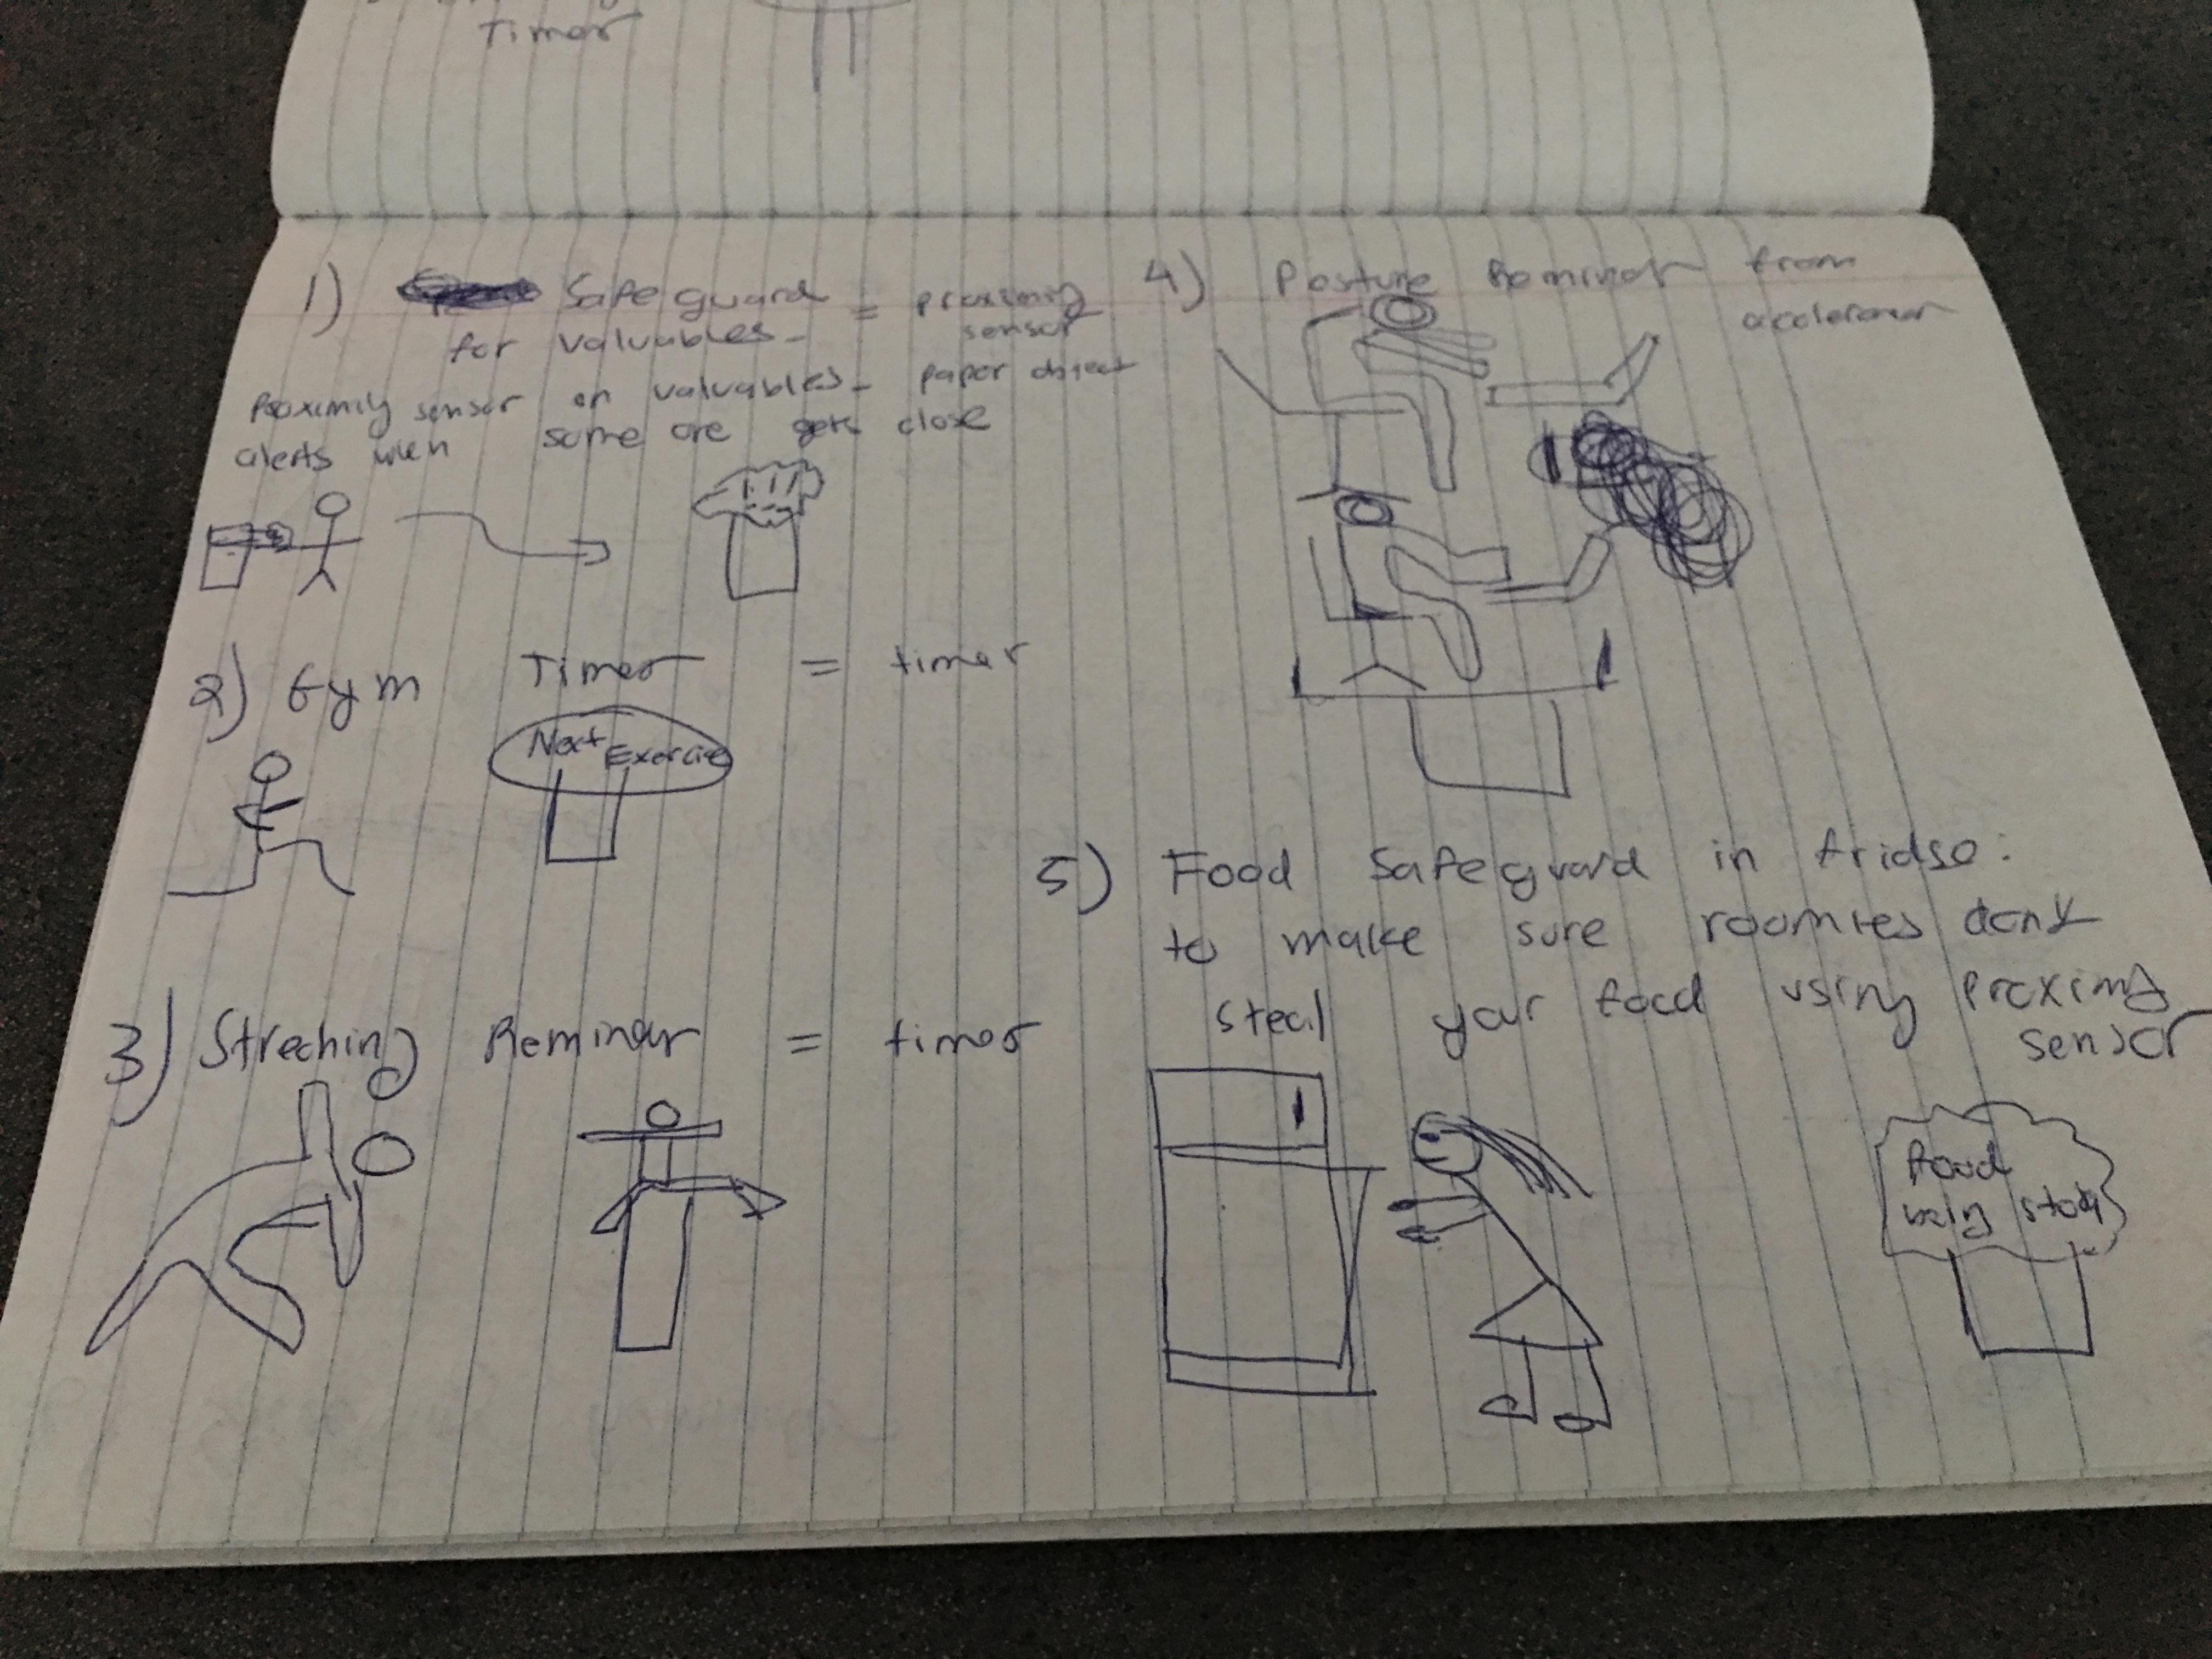 Timer
1) Safeguard = proximity sensor
for valuables -
Proximity sensor on valuables -
alerts when some one gets close
2) Gym Timer = timer
Next Exercise
3) Streching Reminder = timer
4) Posture Reminder from
5) Food Safeguard in fridge:
to make sure roomates dont
steal your food using proximity
sensor
Food
being stolen